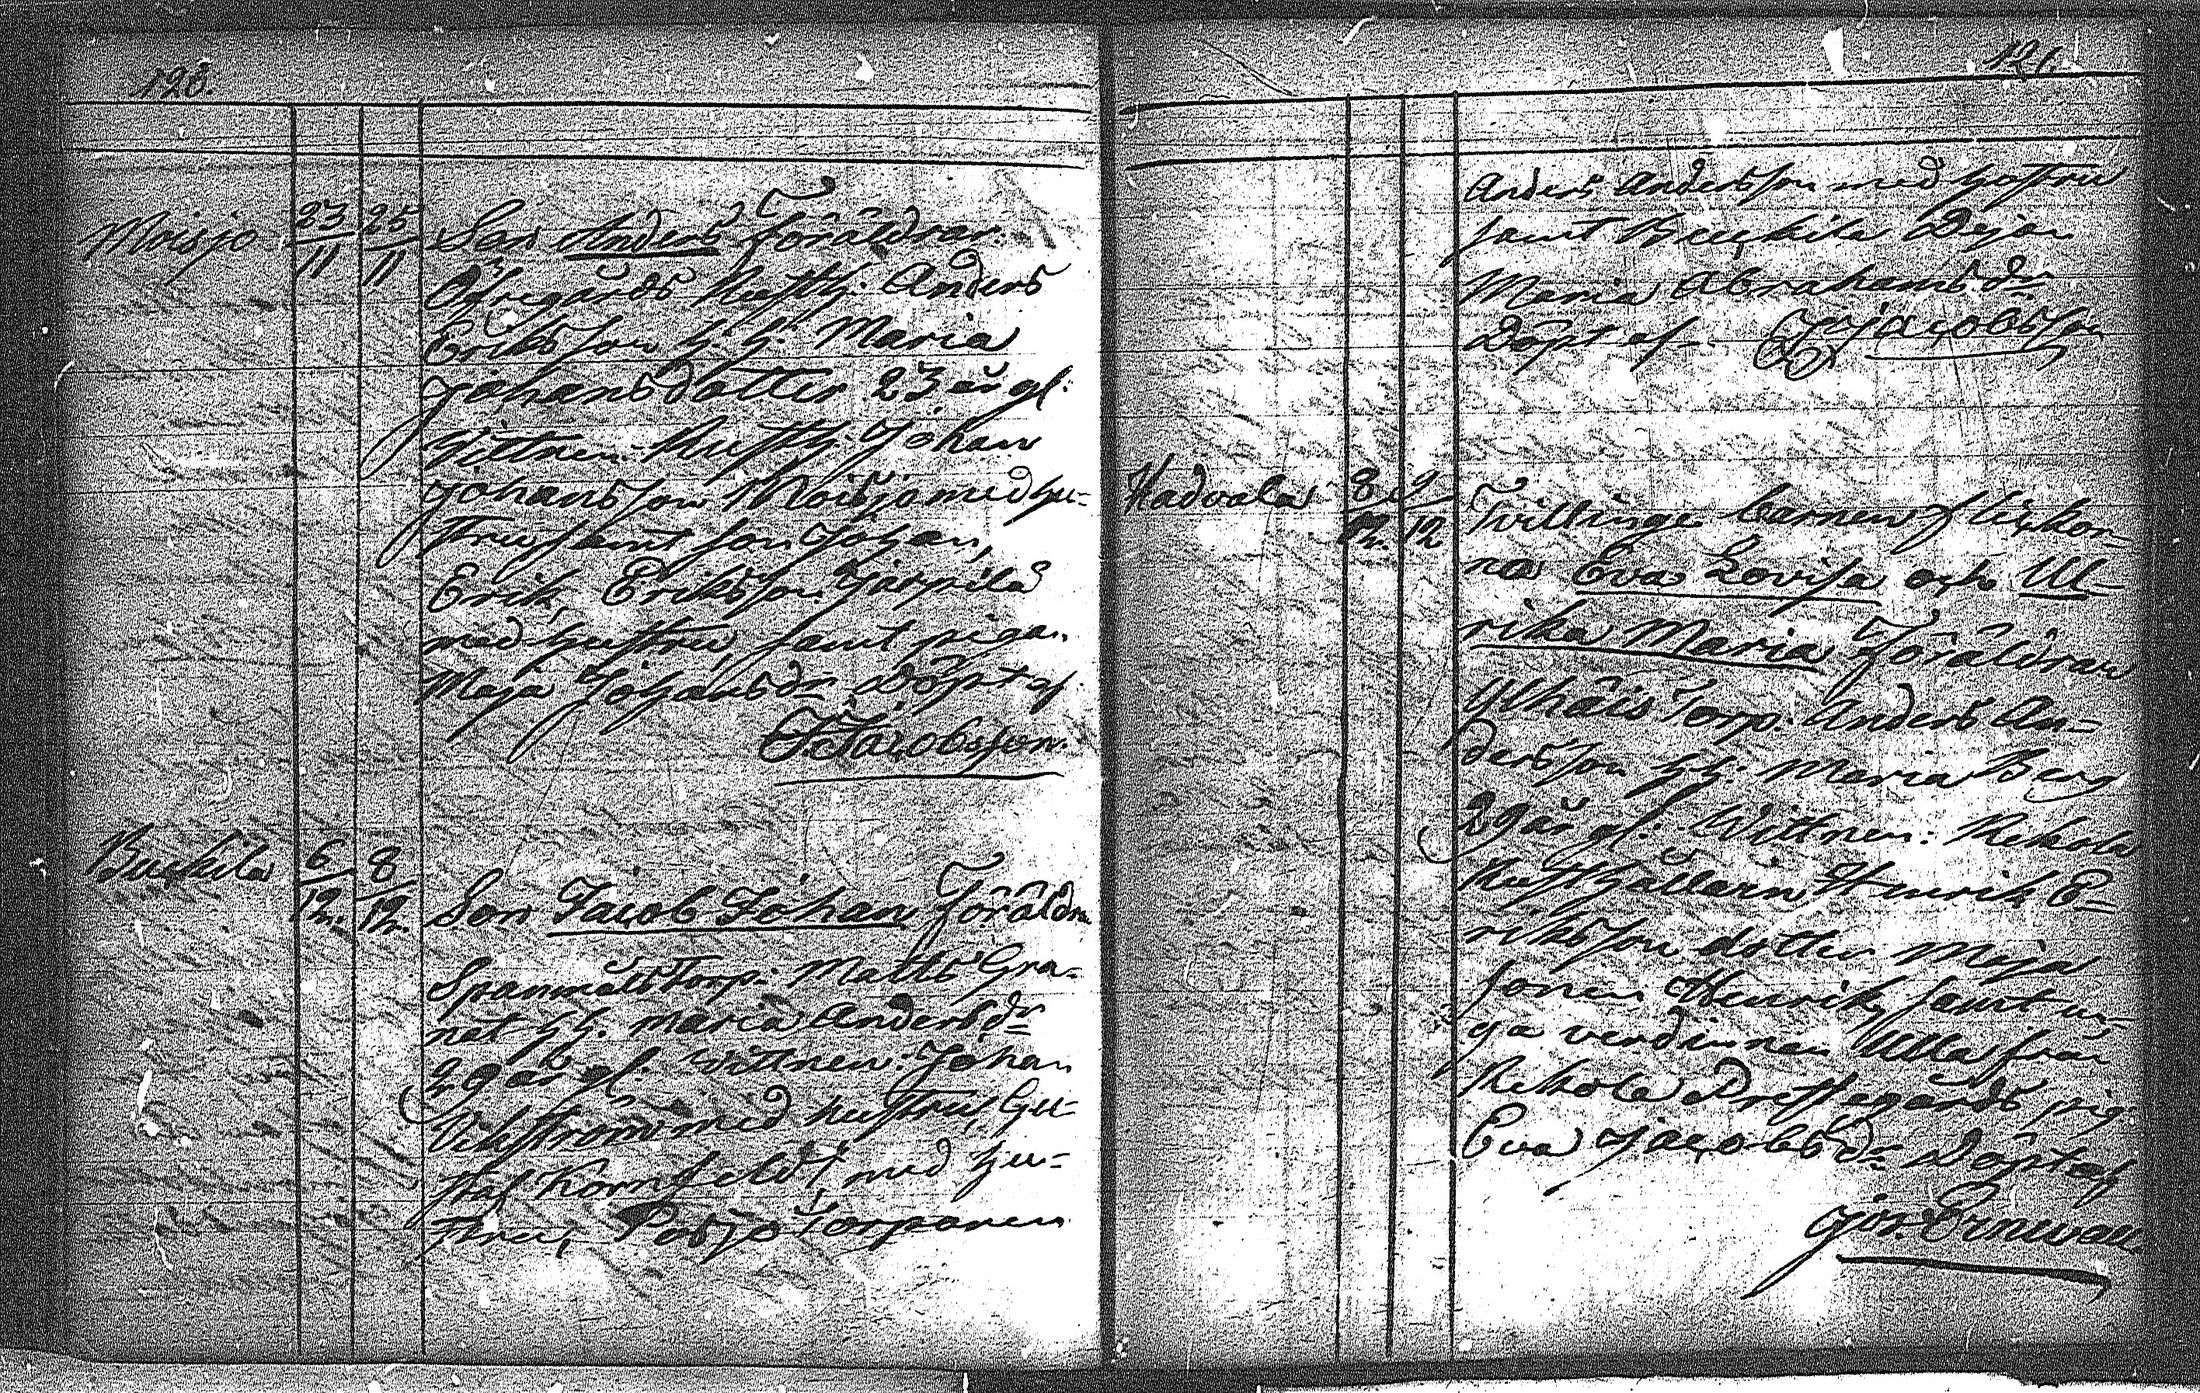 120.
Moisjo 23/11 25/11 Son Anders Föräldrar
Öfregårds Rusth. Anders
Eriksson h. h. Maria
Johansdotter 23 år gl.
Vittnen Rusth. Johan
Johansson Moisjo med hu-
stru samt son Johan,
Erik Eriksson Järpilä
med hustru samt pigan
Maja Johansdr Döpt af
J. Jacobsson.
Buskila 6/12. 8/12. Son Jacob Johan Föräldra
Spannmåls Torp. Matts Gra-
nat h. h. Maria Andersdr
29 år gl. Vittnen: Johan
Ekström med hustru, Gu-
staf Kornfeldt med hu-
stru, Torparen
121.
Anders Andersson med hustru
samt Buskila Dejan
Maria Abrahamsdr
Döpt af J. Jacobsson
Hadvala 8/12. 9/12 Tvillinge barnen flickor-
na Eva Lovisa och Ul-
rika Maria Föräldrar
Torp. Anders An-
dersson h. h. Maria Berg
29 år gl. Wittnen: Rekola
Rusthållarn Henrik E-
riksson dotter Maja
sonen Henrik samt un-
ga verdinnan Ulla från
Rekola Prestegårds pig.
Eva Jacobsdr Döpt af